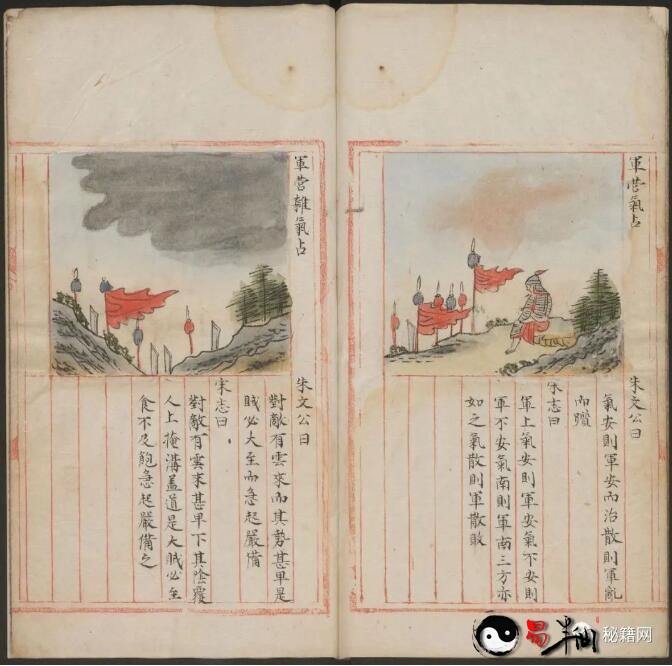 軍營氣占
朱文公曰
氣安則軍安而治散則軍亂
而躓
宋志曰
軍上氣安則軍安氣不安則
軍不安氣南則軍南三方亦
如之氣散則軍散敗
軍營雜氣占
朱文公曰
對敵有雲來而其勢甚卑是
賊必大至而急起嚴備
宋志曰
對敵有雲來甚卑下其陰覆
人上掩溝蓋道是大賊必至
食不及飽急起嚴備之
秘籍网